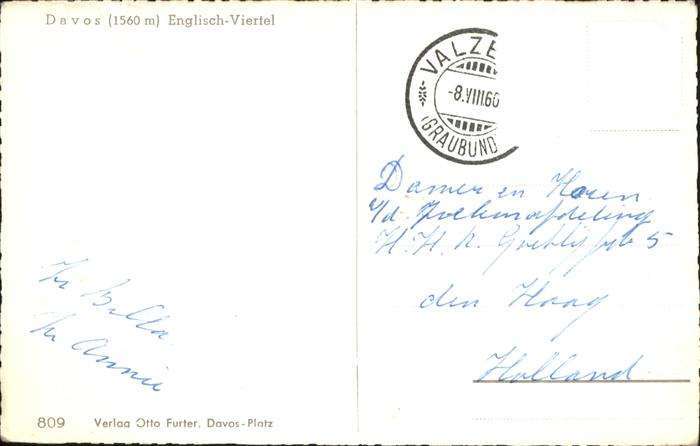 Davos (1560 m) Englisch-Viertel
VALZE
-8.VIII.60
(GRAUBUND
Damen en Heren
v/d
H. H. K. 5
den Haag
Holland
Zr Bella
Zr Annie
809 Verlag Otto Furter, Davos-Platz